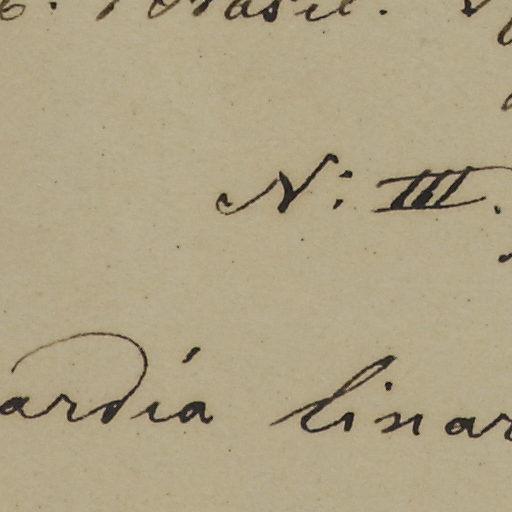 Brasil.
N: III.
ardia linar